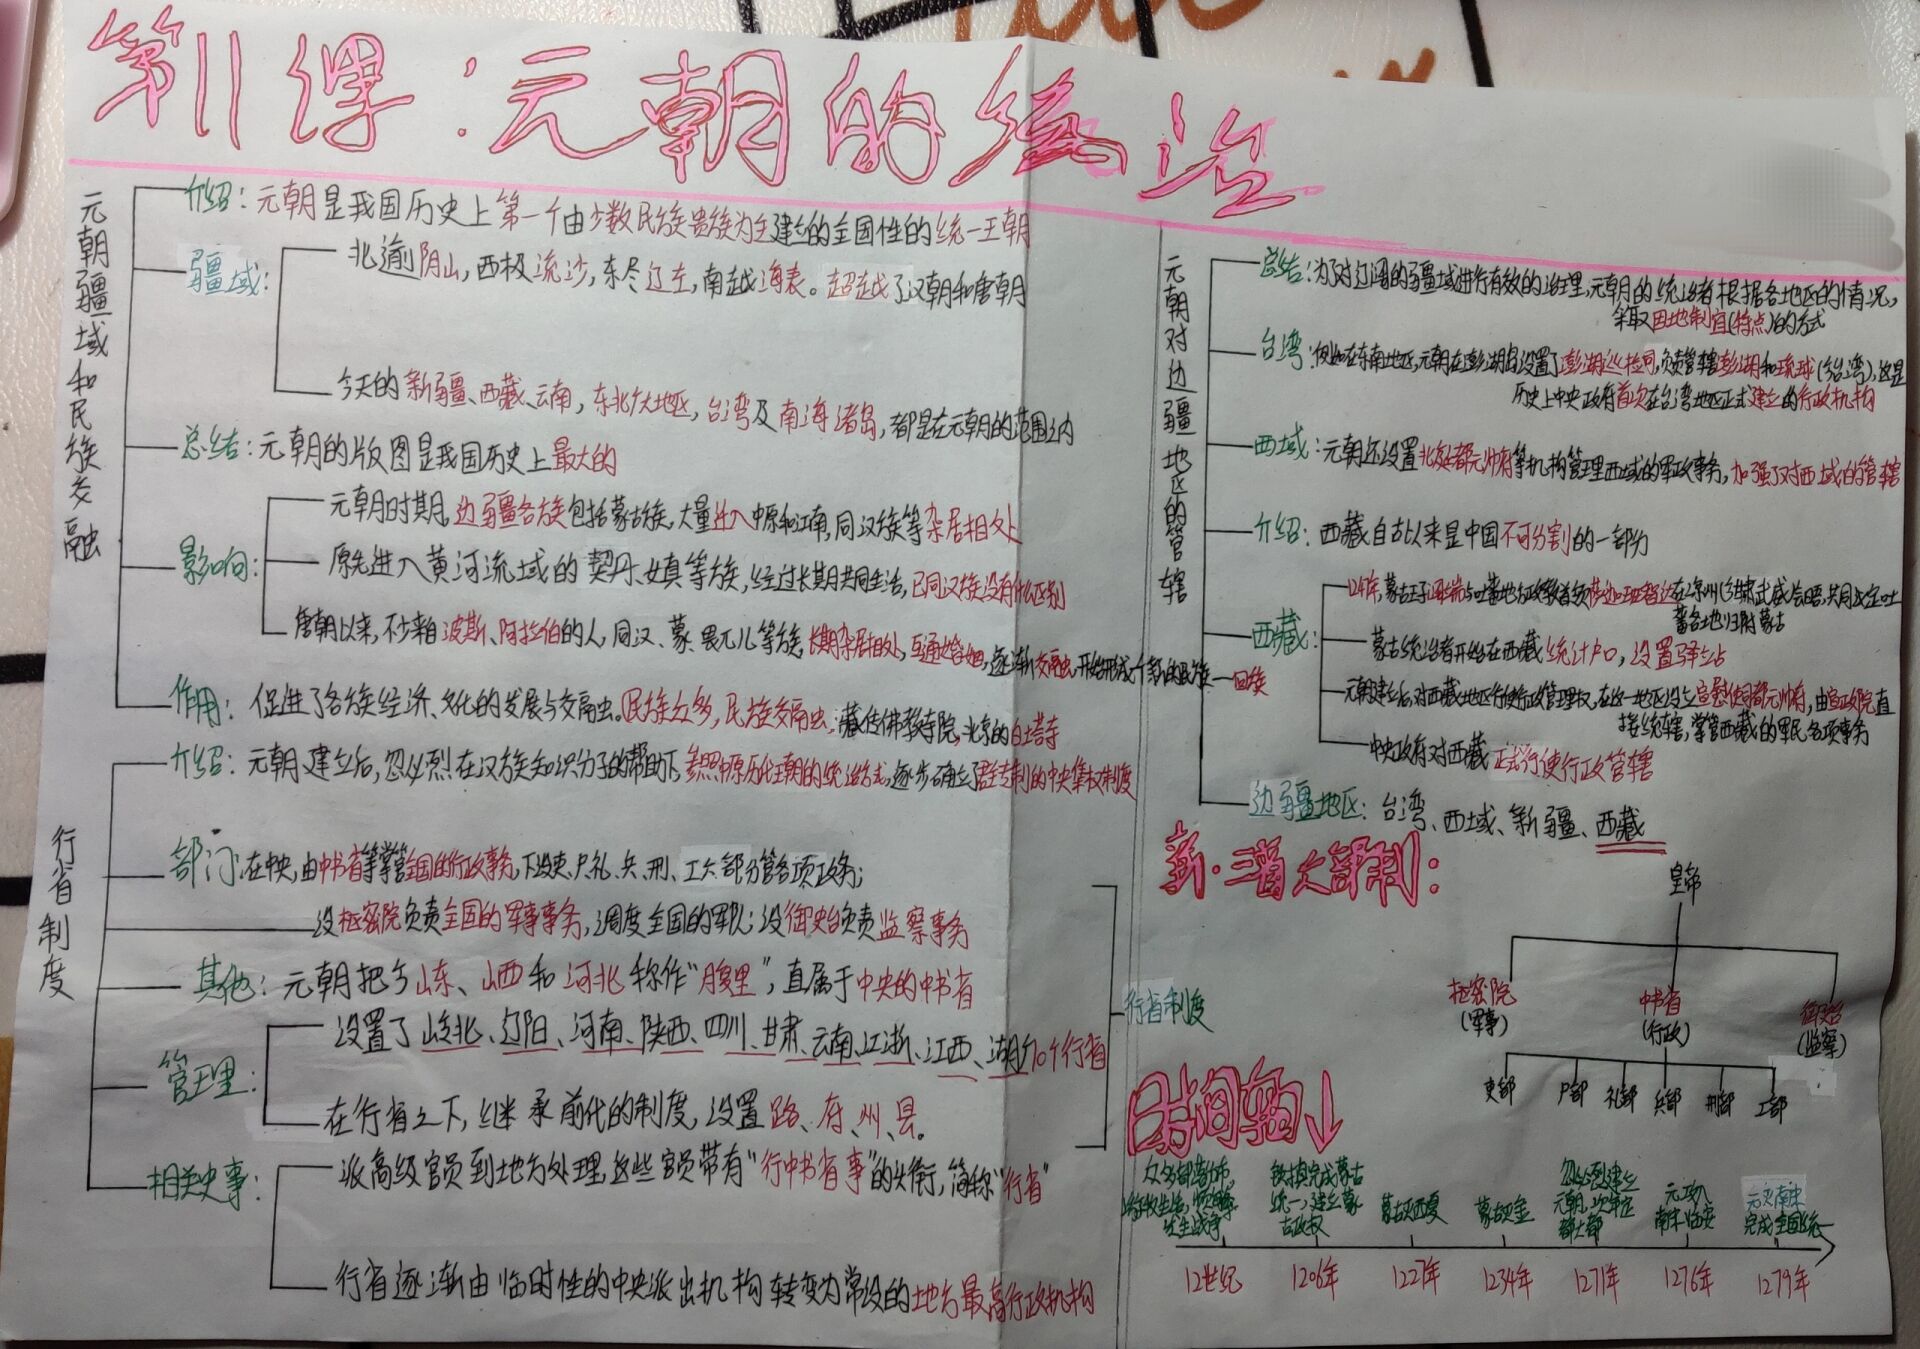 第11课:元朝的统治
元朝疆域和民族交融
介绍:元朝是我国历史上第一个由少数民族贵族为主建立的全国性的统一王朝
疆域:
北逾阴山,西极流沙,东尽辽左,南越海表。超越了汉朝和唐朝
今天的新疆、西藏、云南,东北广大地区,台湾及南海诸岛,都是在元朝的范围之内
总结:元朝的版图是我国历史上最大的
影响:
元朝时期,边疆各族包括蒙古族,大量迁入中原和江南,同汉族等杂居相处
原先进入黄河流域的契丹、女真等族,经过长期共同生活,已同汉族没有什么区别
唐朝以来,不少来自波斯、阿拉伯的人,同汉、蒙、畏兀儿等族,长期杂居相处,互通婚姻,逐渐交融,开始形成一个新的民族—回族
作用:促进了各族经济、文化的发展与交融。民族众多,民族交融:藏传佛教寺院,北京的白塔寺
行省制度
介绍:元朝建立后,忽必烈在汉族知识分子的帮助下,参照中原历代王朝的统治方式,逐步确立了君主专制的中央集权制度
部门:在中央,由中书省等掌管全国的行政事务,下设吏、户、礼、兵、刑、工六部分管各项政务;
设枢密院负责全国的军事事务,调度全国的军队;设御史台负责监察事务
其他:元朝把今山东、山西和河北称作“腹里”,直属于中央的中书省
管理:
设置了岭北、辽阳、河南、陕西、四川、甘肃、云南、江浙、江西、湖广10个行省
在行省之下,继承前代的制度,设置路、府、州、县。
行省制度
相关史事:
派高级官员到地方处理,这些官员带有“行中书省事”的头衔,简称“行省”
行省逐渐由临时性的中央派出机构转变为常设的地方最高行政机构
元朝对边疆地区的管辖
总结:为了对辽阔的疆域进行有效的治理,元朝的统治者根据各地区的情况,
采取因地制宜(特点)的方式
台湾:例如在东南地区,元朝在澎湖岛设置了澎湖巡检司,负责管辖澎湖和琉球(今台湾),这是
历史上中央政府首次在台湾地区正式建立的行政机构
西域:元朝还设置北庭都元帅府等机构管理西域的军政事务,加强了对西域的管辖
介绍:西藏自古以来是中国不可分割的一部分
西藏:
1247年,蒙古王子阔端与吐蕃地方政教首领萨迦班智达在凉州(今甘肃武威)会晤,共同议定吐
蕃各地归附蒙古
蒙古统治者开始在西藏统计户口,设置驿站
元朝建立后,对西藏地区行使行政管理权,在这一地区设立宣慰使司都元帅府,由宣政院直
接统辖,掌管西藏的军民各项事务
中央政府对西藏正式行使行政管辖
边疆地区:台湾、西域、新疆、西藏
新·三省六部制:
皇帝
枢密院 中书省 御史台
(军事) (行政) (监察)
吏部 户部 礼部 兵部 刑部 工部
时间轴↓
发生战争
铁木真完成蒙古
统一,建立蒙
古政权
蒙古灭西夏
蒙古灭金
忽必烈建立
元朝,次年定
都大都
元攻入
南宋临安
元灭南宋
完成全国统一
12世纪 1206年 1227年 1234年 1271年 1276年 1279年